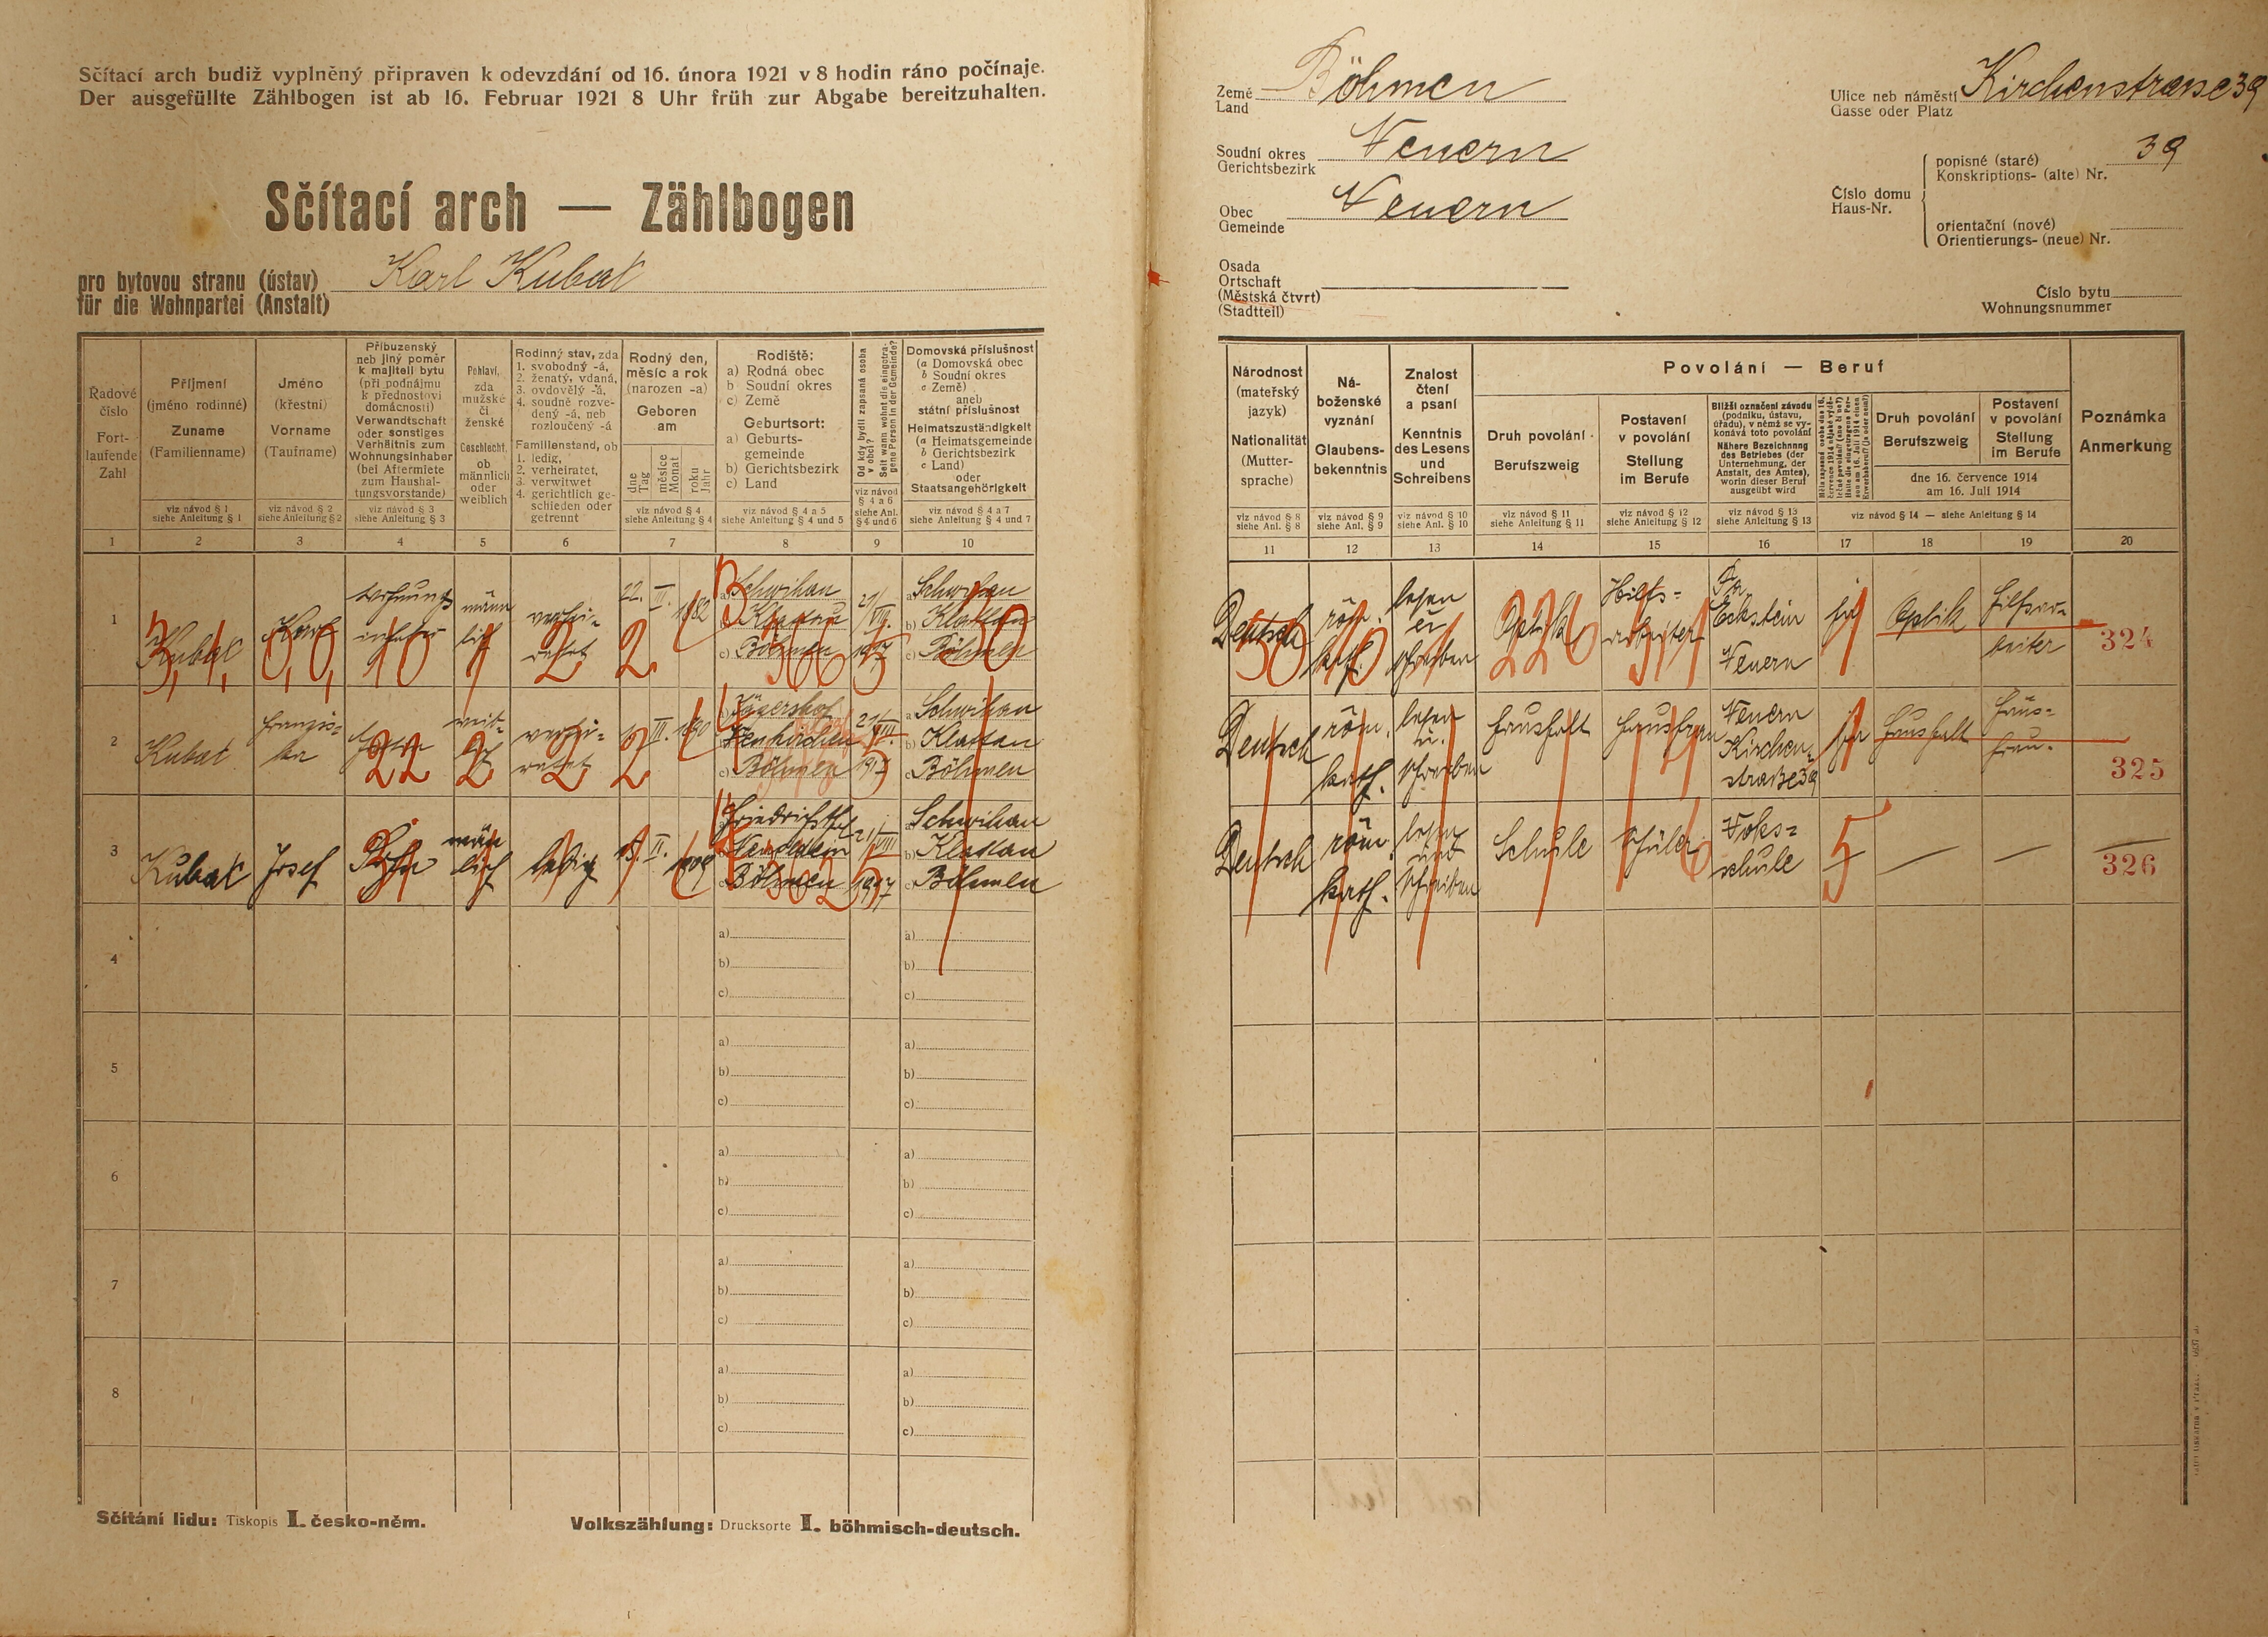 Sčítací arch budiž vyplněný připraven k odevzdání od 16. února 1921 v 8 hodin ráno počínaje.
Der ausgefüllte Zählbogen ist ab 16. Februar 1921 8 Uhr früh zur Abgabe bereitzuhalten.
Sčítací arch — Zählbogen
pro bytovou stranu (ústav)
für die Wohnpartei (Anstalt)
Karl Kubat
Řadové číslo
Fortlaufende Zahl
Příjmení
(jméno rodinné)
Zuname
(Familienname)
viz návod § 1
siehe Anleitung § 1
Jméno
(křestní)
Vorname
(Taufname)
viz návod § 2
siehe Anleitung § 2
Příbuzenský
neb jiný poměr
k majiteli bytu
(při podnájmu
k přednostovi
domácnosti)
Verwandtschaft
oder sonstiges
Verhältnis zum
Wohnungsinhaber
(bei Aftermiete
zum Haushal-
tungsvorstande)
viz návod § 3
siehe Anleitung § 3
Pohlaví,
zda
mužské
či
ženské
Geschlecht,
ob
männlich
oder
weiblich
Rodinný stav, zda
1. svobodný -á,
2. ženatý, vdaná,
3. ovdovělý -á,
4. soudně rozve-
dený -á, neb
rozloučený -á
Familienstand, ob
1. ledig,
2. verheiratet,
3. verwitwet
4. gerichtlich ge-
schieden oder
getrennt
Rodný den,
měsíc a rok
(narozen -a)
Geboren
am
dne
Tag
měsíce
Monat
roku
Jahr
viz návod § 4
siehe Anleitung § 4
Rodiště:
a) Rodná obec
b) Soudní okres
c) Země
Geburtsort:
a) Geburts-
gemeinde
b) Gerichtsbezirk
c) Land
viz návod § 4 a 5
siehe Anleitung § 4 und 5
Od kdy bydlí zapsaná osoba
v obci?
Seit wann wohnt die eingetra-
gene Person in der Gemeinde?
viz návod
§ 4 a 6
siehe Anl.
§ 4 und 6
Domovská příslušnost
(a Domovská obec
b Soudní okres
c Země)
aneb
státní příslušnost
Heimatszuständigkeit
(a Heimatsgemeinde
b Gerichtsbezirk
c Land)
oder
Staatsangehörigkeit
viz návod § 4 a 7
siehe Anleitung § 4 und 7
1 2 3 4 5 6 7 8 9 10
1
Kubat
Karl
Wohnungs
inhaber
männ
lich
verhei-
ratet
22. III. 1882
a) Schwihau
Klattau
c) Böhmen
a) Schwihau
b) Klattau
c) Böhmen
2
Kubat
Franzis-
ka
Gattin
weib-
lich
verhei-
ratet
III. 1890
Jägershof
Neukirchen
c) Böhmen
a) Schwihau
b) Klattau
c) Böhmen
3
Kubat
Josef
Sohn
männ
lich
ledig
II. 1909
Friedrichsthal
c) Böhmen
Schwihau
b) Klattau
c) Böhmen
4
a)
b)
c)
a)
b)
c)
5
a)
b)
c)
a)
b)
c)
6
a)
b)
c)
a)
b)
c)
7
a)
b)
c)
a)
b)
c)
8
a)
b)
c)
a)
b)
c)
Sčítání lidu: Tiskopis I. česko-něm.
Volkszählung: Drucksorte I. böhmisch-deutsch.
Země
Land
Böhmen
Soudní okres
Gerichtsbezirk
Neuern
Obec
Gemeinde
Neuern
Osada
Ortschaft
(Městská čtvrt)
(Stadtteil)
Ulice neb náměstí
Gasse oder Platz
Kirchenstrasse 39
Číslo domu
Haus-Nr.
popisné (staré)
Konskriptions- (alte) Nr.
39
orientační (nové)
Orientierungs- (neue) Nr.
Číslo bytu
Wohnungsnummer
Národnost
(mateřský
jazyk)
Nationalität
(Mutter-
sprache)
viz návod § 8
siehe Anl. § 8
Ná-
boženské
vyznání
Glaubens-
bekenntnis
viz návod § 9
siehe Anl. § 9
Znalost
čtení
a psaní
Kenntnis
des Lesens
und
Schreibens
viz návod § 10
siehe Anl. § 10
Povolání — Beruf
Druh povolání
Berufszweig
viz návod § 11
siehe Anleitung § 11
Postavení
v povolání
Stellung
im Berufe
viz návod § 12
siehe Anleitung § 12
Bližší označení závodu
(podniku, ústavu,
úřadu), v němž se vy-
konává toto povolání
Nähere Bezeichnung
des Betriebes (der
Unternehmung, der
Anstalt, des Amtes),
worin dieser Beruf
ausgeübt wird
viz návod § 13
siehe Anleitung § 13
Druh povolání
Berufszweig
Postavení
v povolání
Stellung
im Berufe
dne 16. července 1914
am 16. Juli 1914
viz návod § 14 — siehe Anleitung § 14
Poznámka
Anmerkung
11 12 13 14 15 16 17 18 19 20
Deutsch
röm.
kath.
lesen
u
schreiben
Optik
Hilfs-
arbeiter
Fa.
Eckstein
Neuern
ja
Optik
Hilfsar-
beiter
324
Deutsch
röm.
kath.
lesen
u.
schreiben
Haushalt
Hausfrau
Neuern
Kirchen-
straße 39
ja
Haushalt
Haus-
frau.
325
Deutsch
röm.
kath.
lesen
und
schreiben
Schule
Schüler
Volks-
schule
5
—
—
—
326